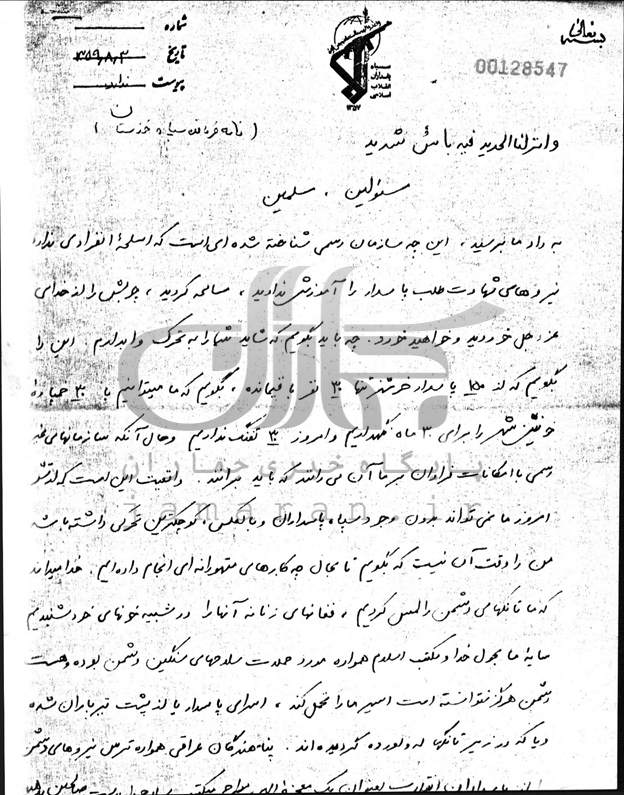 بسمه تعالی
شماره
تاریخ ۱۳۵۹/۸/۳
پیوست ندارد
سپاه پاسداران انقلاب اسلامی
۱۳۵۷
00128547
(نامه فرمانده سپاه خوزستان)
و انزلنا الحدید فیه باس شدید
مسئولین ، مسلمین
به داد ما برسید ، این چه سازمان رسمی شناخته شده ای است که اسلحهٔ انفرادی ندارد
نیروهای شهادت طلب پاسدار را آموزش ندادید ، مسامحه کردید ، چوبش را از خدای
عزوجل خوردید و خواهید خورد . چه باید بگویم که شاید شما را به تحرک وا بدارم این را
بگویم که از ۱۵۰ پاسدار خرمشهر تنها ۳۰ نفر باقیمانده ، بگویم که ما میتوانیم با ۳۰ خمپاره
خونین شهر را برای ۳۰ ماه نگهداریم و امروز ۳۰ تفنگ نداریم و حال آنکه سازمانهای غیر
رسمی با امکانات فراوان بر ما آن می رانند که باید برانند . واقعیت این است که ارتش
امروز ما نمی تواند بدون وجود سپاه پاسداران و بالعکس ، کوچکترین تحرکی داشته باشد
من را وقت آن نیست که بگویم تا بحال چه کارهای متهورانه ای انجام داده ایم . خدا میداند
که ما تانکهای دشمن را لمس کردیم ، فغانهای زنانه آنها را در شبیه خونهای خود شنیدیم
سایهٔ ما بحول خدا و مکتب اسلام همواره مورد سلاحهای سنگین دشمن بوده و هست
دشمن هرگز نتوانسته است اسیر ما را تحمل کند ، اسرای پاسدار یا از پشت تیرباران شده
و یا که در زیر تانکها له و لورده گردیده اند . پناهندگان عراقی همواره ترس نیروهای دشمن
جماران
پایگاه خبری جماران
jamaran.ir